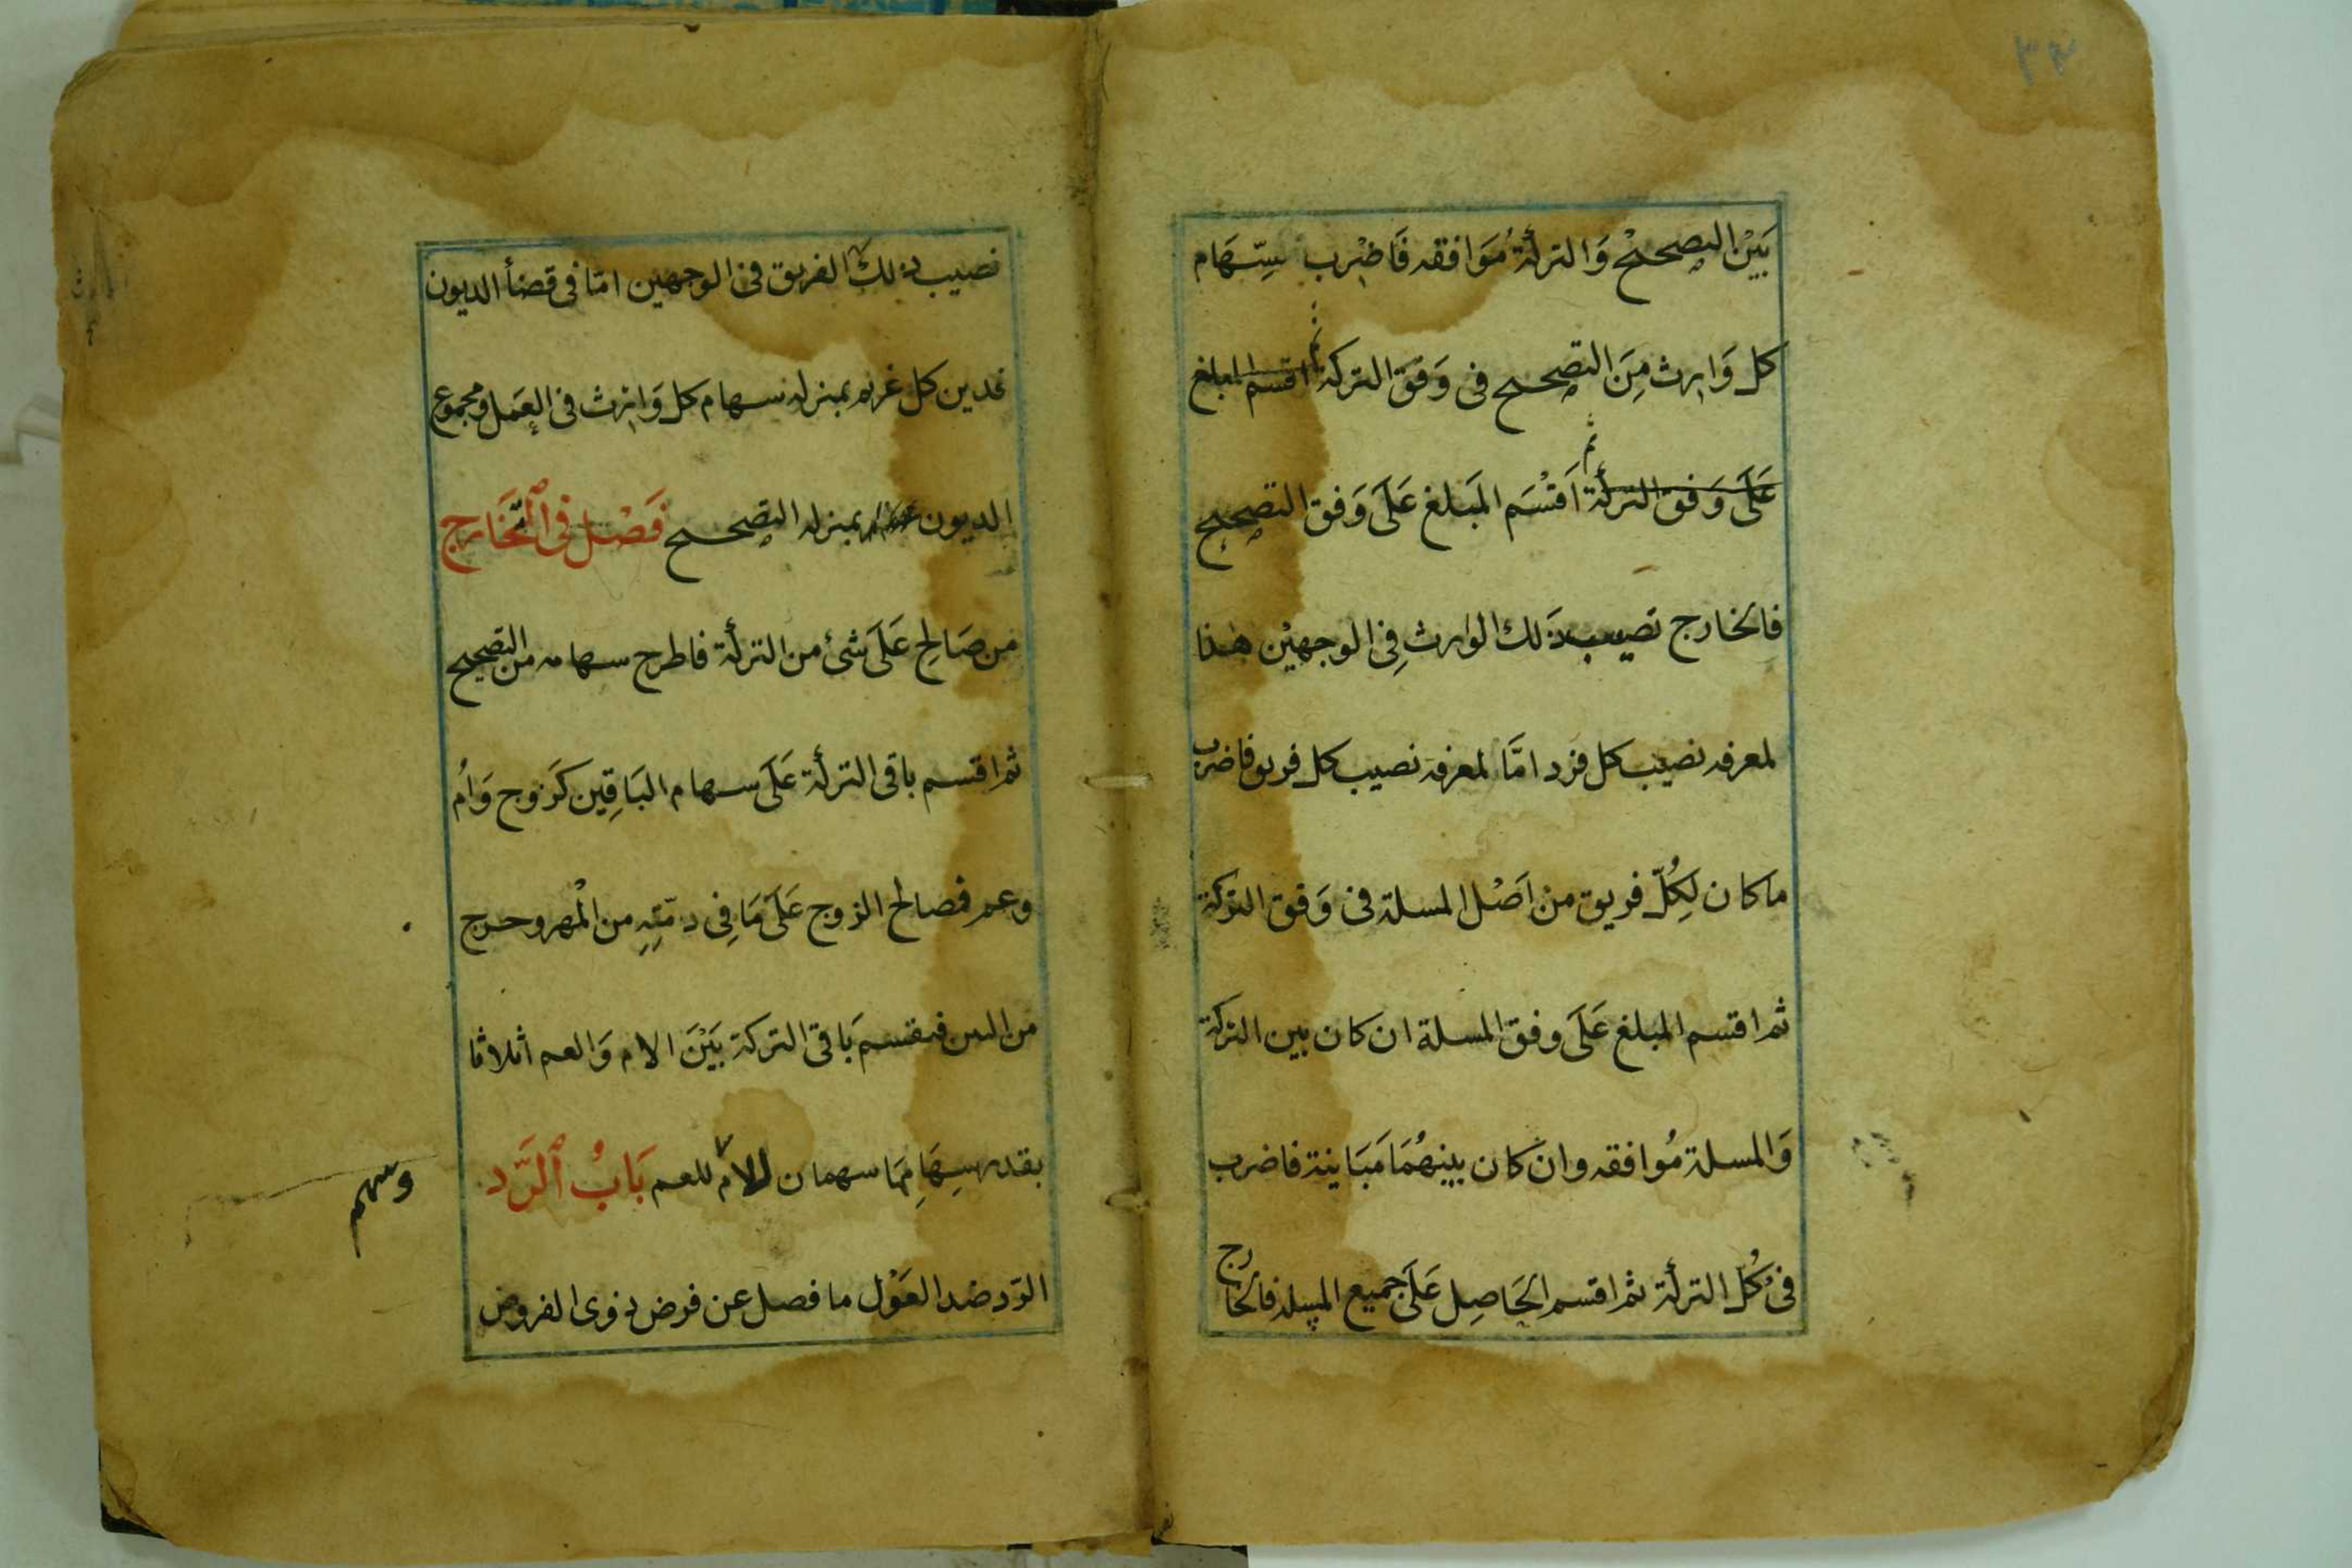 ٣٣
بَيْنَ التصحيحْ وَالتركةُ مُوَافقه فَاضْرِب سِّهَام
كل وَارث مِنَ التصحيح فى وَفق التركة ثم اقسم المبلغ
عَلَى وَفق التركة ثم اَقْسَم المَبلغ عَلَى وَفق التصحيح
فالخارج نصيب ذَلك الوارث فِى الوجهيْن هذا
لمعرفه نصيب كل فرد امَّا لمعرفة نصيب كل فريق فاضرب
ما كان لِكُلّ فريق من اَصْل المسلة فى وَفق التركة
ثم اقسم المبلغ عَلَى وفق المسلة ان كان بين التركة
وَالمسلة مُوافقه وان كان بينهُمَا مَبَاينة فاضرب
فى كُل التركة ثم اقسم الحَاصِل عَلَى جميع المسلة فالخارج
نصيب ذلك الفريق فى الوجهين امّا فى قضأ الديون
فدين كل غريم بمنزله سهام كل وَارث فى العَمَل ومجموع
الديون بمنزله التصحيح فَصْل فى التَّخَارج
من صَالح عَلَى شئ من التركة فاطرح سهامه من التصحيح
ثم اقسم باقى التركة عَلَى سهام البَاقِين كَزوج وَاُم
وعم فصالح الزوج عَلَى مَا فِى ذمّتِهِ من المْهر وخرج
من البين فيقسم بَاقى التركة بَيْنَ الام وَالعم اثلاثا
بقدر سِهَامِهمَا سهمان للام للعم بَابُ الرَّد
وسهم
الرّد ضد العَوْل ما فضل عن فرض ذوى الفروض